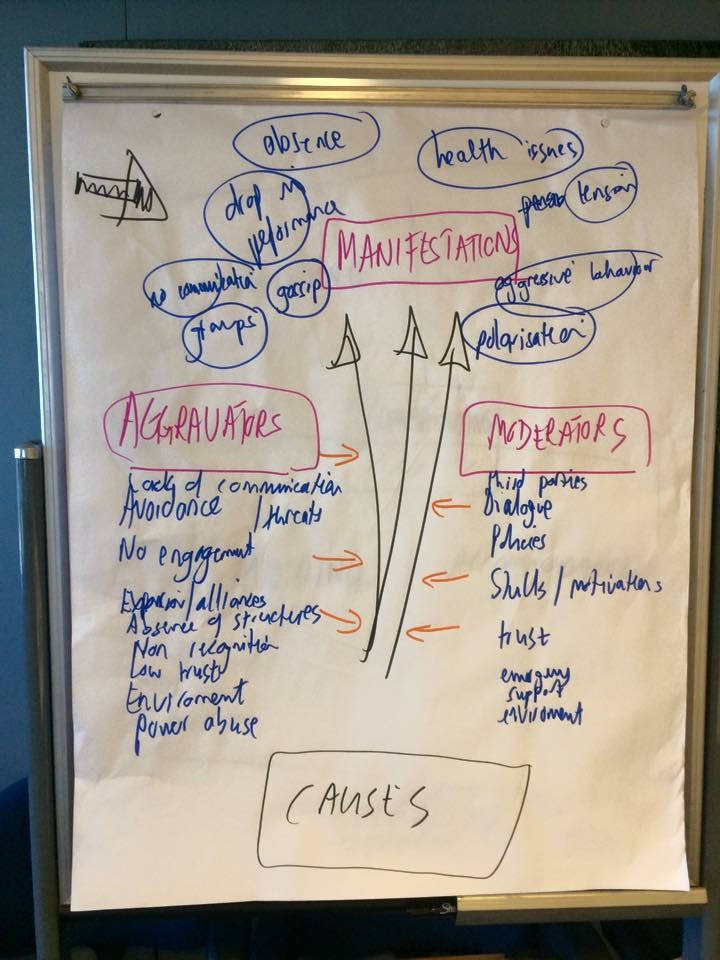 absence
health issues
drop in
performance
tension
MANIFESTATIONS
no communication
gossip
aggressive behaviour
groups
polarisation
AGGRAVATORS
MODERATORS
Lack of communication
Avoidance /threats
No engagement
Expansion/alliances
Absence of structures
Non recognition
Low trust
Enviroment
power abuse
third parties
Dialogue
Policies
Skills/motivations
trust
emergency
support
enviroment
CAUSES